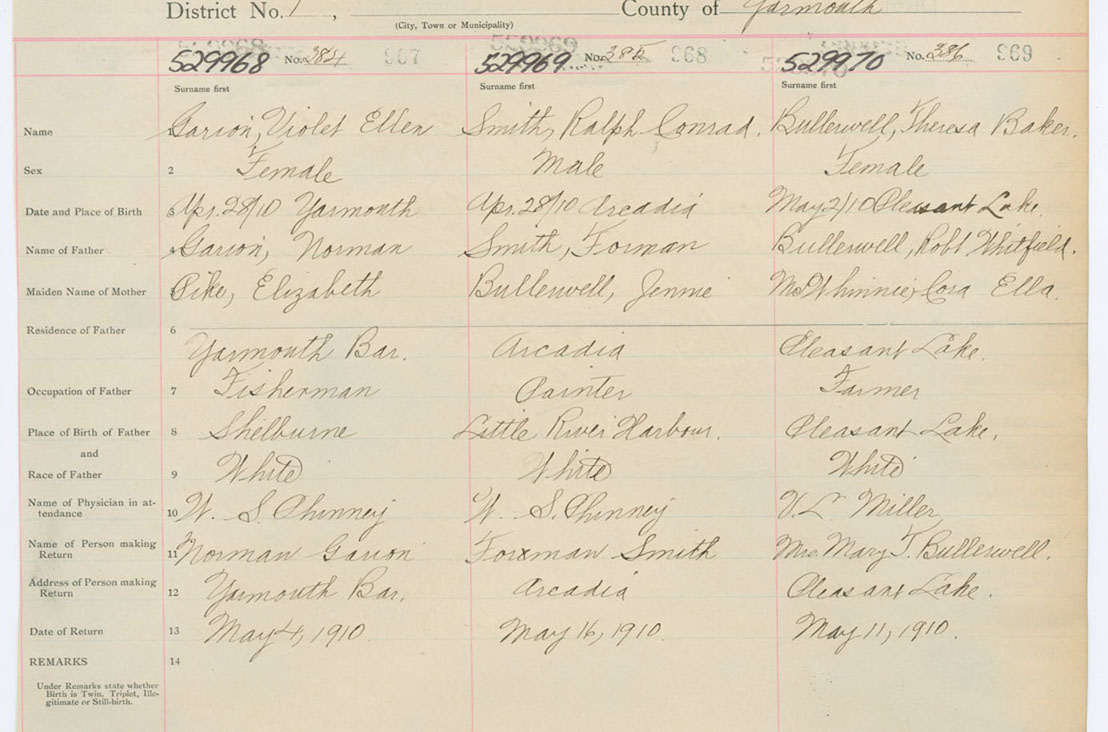 District No. 1, County of Yarmouth
(City, Town or Municipality)
529968 529969
529968 No. 384 967 529969 No. 385 968 529970 No. 386 969
Surname first Surname first Surname first
Name 1 Garion, Violet Ellen Smith, Ralph Conrad. Bullerwell, Theresa Baker.
Sex 2 Female Male Female
Date and Place of Birth 3 Apr. 29/10 Yarmouth Apr. 28/10 Arcadia May 2/10 Pleasant Lake.
Name of Father 4 Garion, Norman Smith, Forman Bullerwell, Robt Whitfield.
Maiden Name of Mother 5 Pike, Elizabeth Bullerwell, Jennie McWhinnie, Cora Ella.
Residence of Father 6 Yarmouth Bar. Arcadia Pleasant Lake.
Occupation of Father 7 Fisherman Painter Farmer
Place of Birth of Father 8 Shelburne Little River Harbour. Pleasant Lake.
and
Race of Father 9 White White White
Name of Physician in at-
tendance 10 W. S. Phinney W. S. Phinney V. L. Miller
Name of Person making
Return 11 Norman Garion Forman Smith Mrs. Mary T. Bullerwell.
Address of Person making
Return 12 Yarmouth Bar. Arcadia Pleasant Lake.
Date of Return 13 May 4, 1910. May 16, 1910. May 11, 1910.
REMARKS 14
Under Remarks state whether
Birth is Twin, Triplet, Ille-
gitimate or Still-birth.